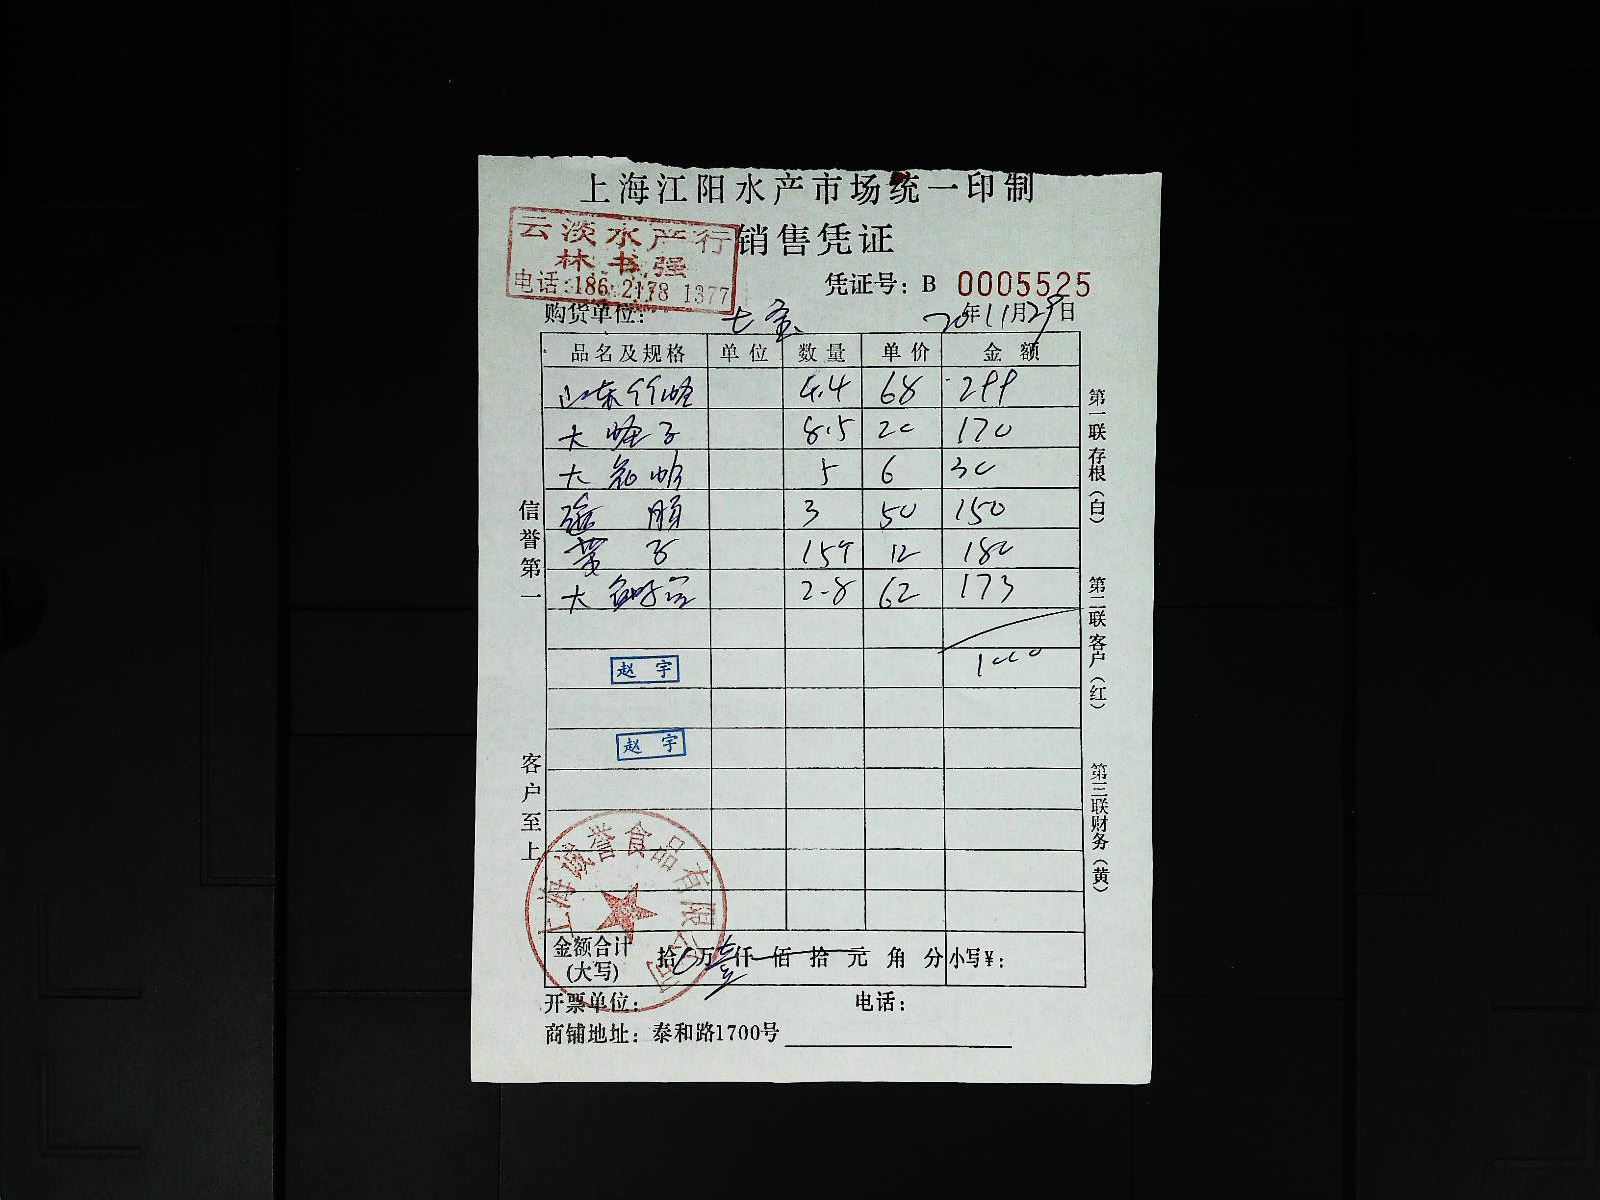 上海江阳水产市场统一印制
云淡水产行
销售凭证
林书强
电话:186 2178 1377
凭证号: B 0005525
购货单位: 七宝
20年11月29日
品名及规格 单位 数量 单价 金额
山东竹蛏 4.4 68 299
大蛏子 8.5 20 170
大 5 6 30
3 50 150
黄子 159 12 180
大 2-8 62 173
1000
赵宇
赵宇
信誉第一
客户至上
第一联存根(白)
第二联客户(红)
第三联财务(黄)
上海诚誉食品有限公司
金额合计(大写) 拾万壹仟佰拾元角分 小写¥:
开票单位: 电话:
商铺地址: 泰和路1700号